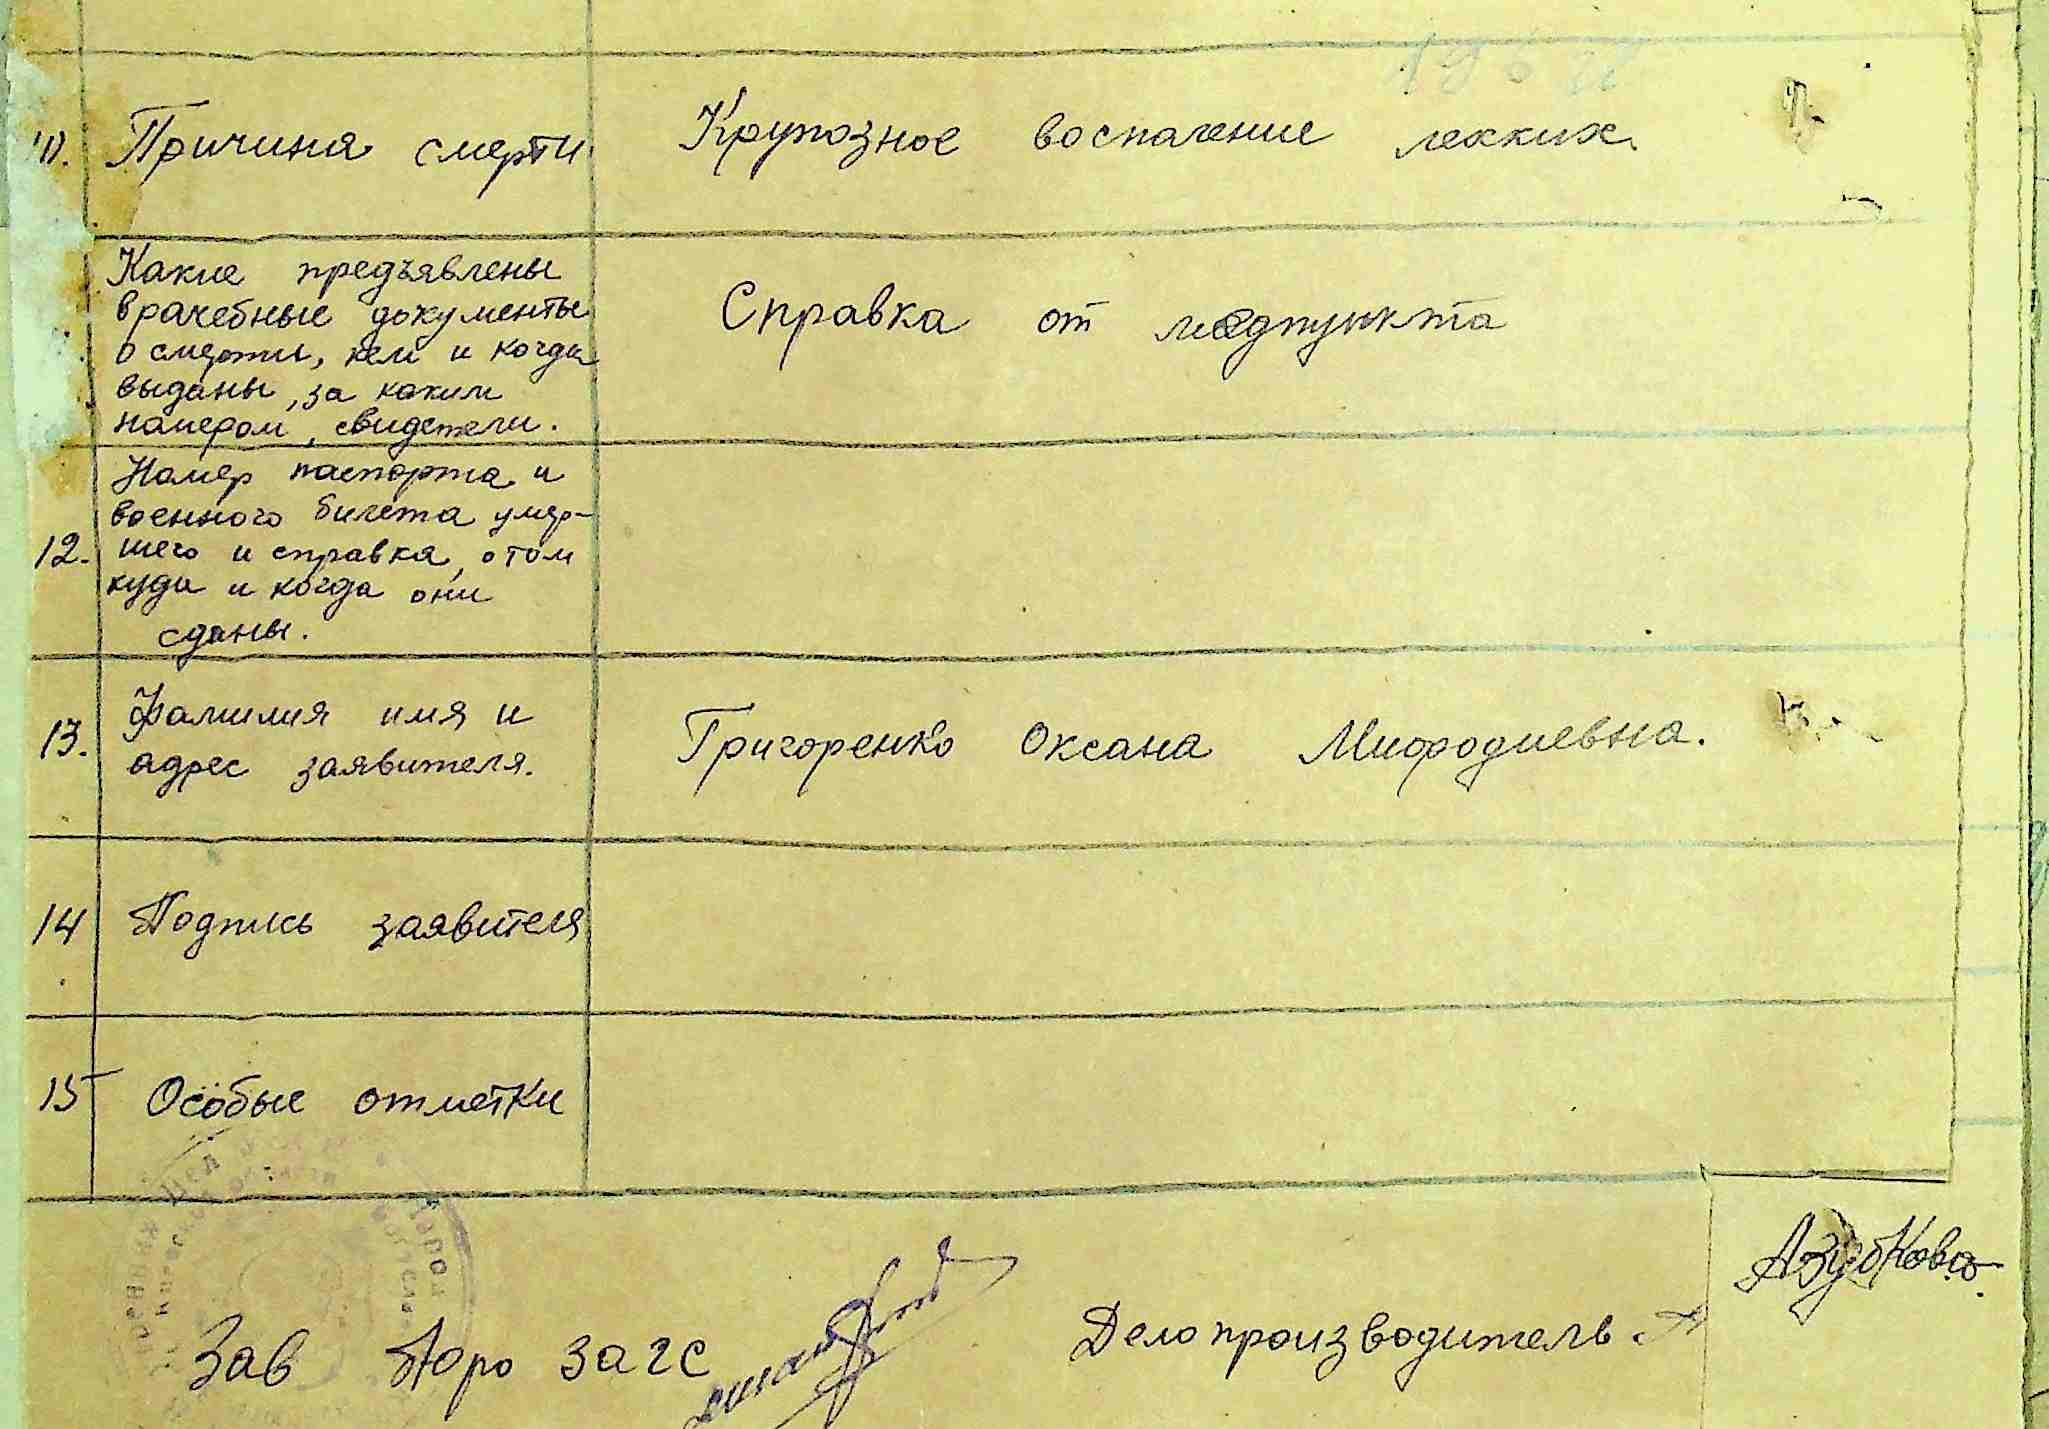 11. Причина смерти Крупозное воспаление легких.
Какие предъявлены
врачебные документы
о смерти, кем и когда
выданы, за каким
номером, свидетели.
Справка от медпункта
Номер паспорта и
военного билета умер-
12. шего и справка, о том
куда и когда они
сданы.
13. Фамилия имя и
адрес заявителя.
Григоренко Оксана Мифодиевна.
14 Подпись заявителя
15 Особые отметки
Зав бюро загс
Делопроизводитель